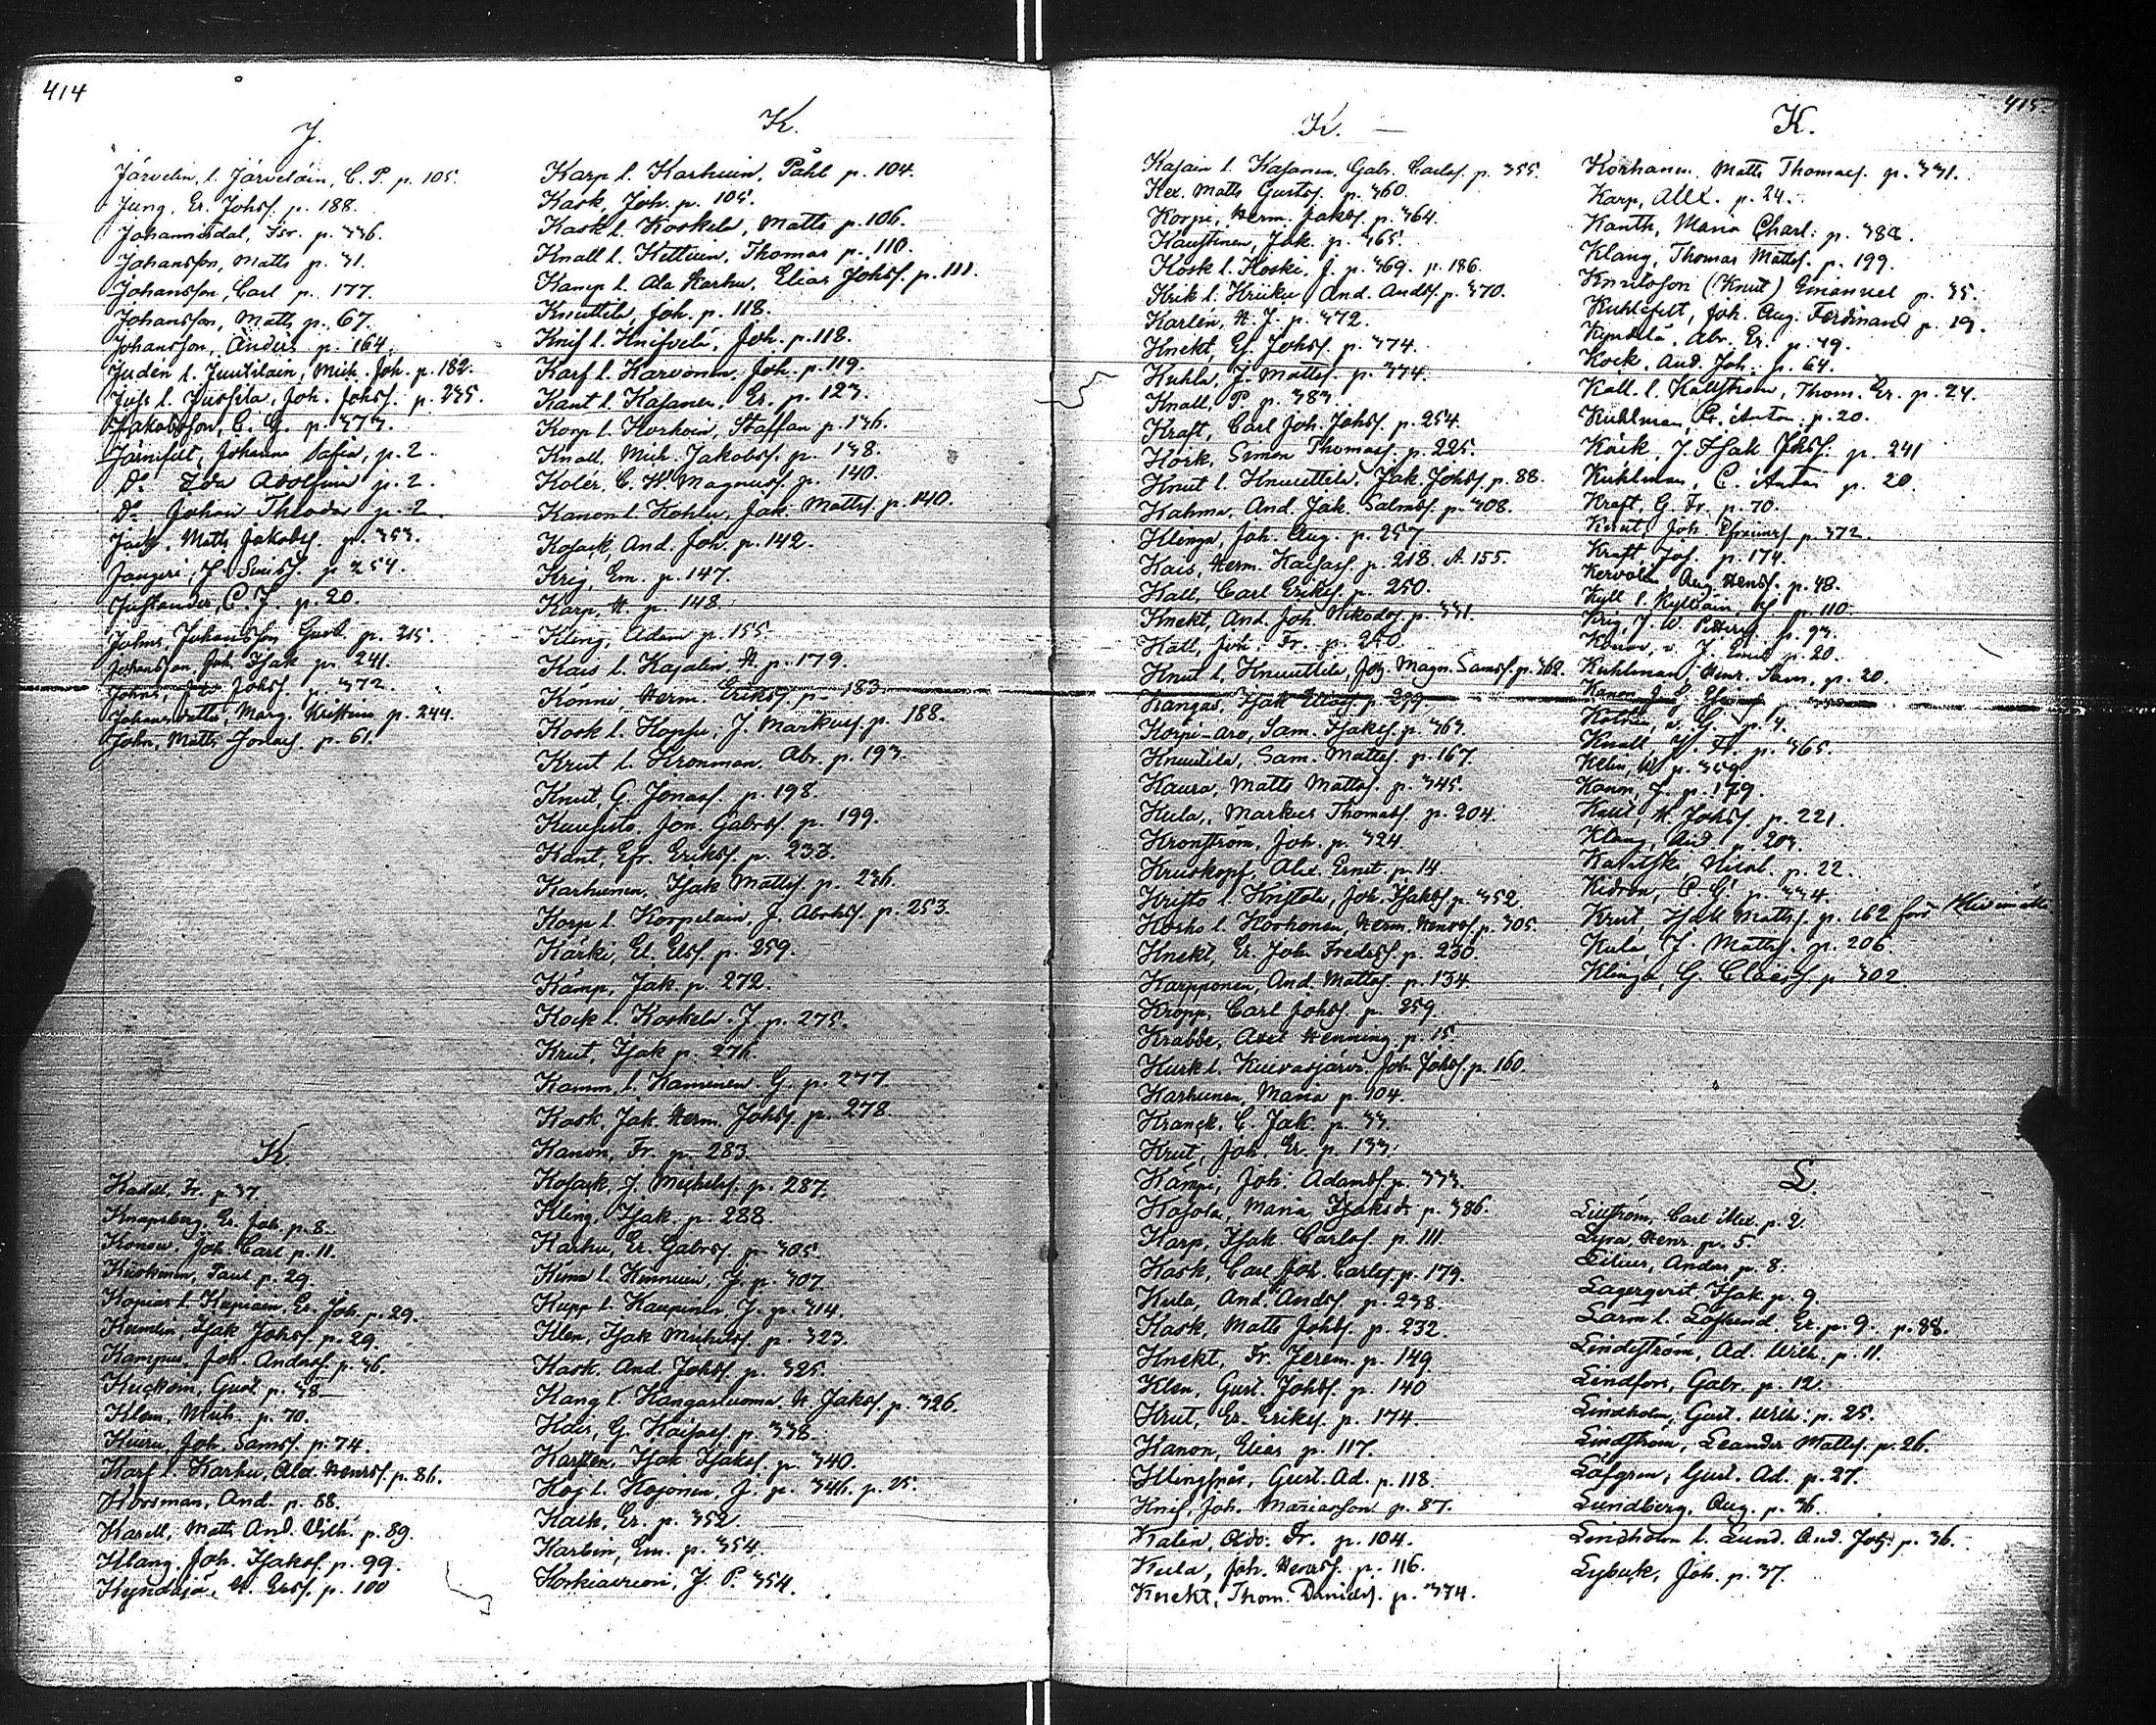 414
J.
Järvelin, l. Järveläin, C. P. p. 105.
Jung, Er. Johsf. p. 188.
Johannisdal, Isr. p. 336.
Johansson, Matts p. 31.
Johansson, Carl p. 177.
Johansson, Matts p. 67.
Johansson, Anders p. 164.
Judén l. Juutilain, Mich. Joh. p. 182.
Juss l. Jussila, Joh. Johsf. p. 235.
Jakobsson, C. G. p. 373.
Järnefelt, Johanna Sofia, p. 2.
Do Eda Adolfina p. 2.
Do Johan Theodor p. 2
Jack, Matts Jakobsf. p. 353.
p. 254.
C. J. p. 20.
Johns, Johansson Gust. p. 215.
Johansson, Joh. Isak p. 241.
Johns, Johsf. p. 372.
Marg. Kristina p. 244.
John, Matts Jonasf. p. 61.
K.
Kadell, Fr. p. 37.
Knapsberg, Er. Joh. p. 8.
Konow, Joh. Carl p. 11.
Paul p. 29.
Kopias l. Er. Joh. p. 29.
Kumlin, Isak Johsf. p. 29.
Kampus, Joh. Andersf. p. 36.
Gust. p. 38
Klem, Mich. p. 70.
Kiuru, Joh. Samsf. p. 74.
Karf l. Karhu, Alex. Henrsf. p. 86.
Korsman, And. p. 88.
Karell, Matts And. Vilh. p. 89.
Klang, Joh. Isaksf. p. 99.
Ersf. p. 100
K.
Karp l. Karhuin, Påhl p. 104.
Kask, Joh. p. 105.
Kask l. Koskela, Matts p. 106.
Knall l. Kettuin, Thomas p. 110.
Kamp l. Ala Karhu, Elias Johsf. p. 111.
Knuttila, Joh. p. 118.
Knif l. Knifvilä, Joh. p. 118.
Karf l. Karvonen, Joh. p. 119.
Kant l. Kasanen, Er. p. 123.
Korp l. Korhoin, Staffan p. 136.
Knall, Mich. Jakobsf. p. 138.
Koler, C. H. Magnusf. p. 140.
Kanon l. Kohlu, Jak. Mattsf. p. 140.
Kosack, And. Joh. p. 142.
Krig, Em. p. 147.
Karp, H. p. 148.
Kling, Adam p. 155
Kais l. Kajalin, H. p. 179.
Könni, Herm. Eriksf. p. 183.
Kask l. Kopsu, J. Markusf. p. 188.
Krut l. Kronman, Abr. p. 193.
Knut, G. Jonasf. p. 198.
Jon. Gabrsf. p. 199.
Kant, Efr. Eriksf. p. 233.
Karhunen, Isak Mattsf. p. 236.
Korp l. Korpelain, J. Abrahsf. p. 253.
Kärki, El. Elsf. p. 259.
Kämp, Jak. p. 272.
Kock l. Koskela, J. p. 275.
Krut, Isak p. 276.
Kamm, l. Kaminen, G. p. 277.
Kask, Jak. Herm. Johsf. p. 278
Kanon, Fr. p. 283.
Kosack, J. Michelsf. p. 287.
Kling, Isak p. 288.
Karhu, Er. Gabrsf. p. 305.
J. p. 307.
Kupp l. Kaupinen, J. p. 314.
Klen, Isak Michelsf. p. 323.
Kask, And. Johsf. p. 325.
Kang l. Kangasluoma, H. Jaksf. p. 326.
Kais, G. Kaisasf. p. 338.
Karsten, Isak Isaksf. p. 340.
Koj l. Kojonen, J. p. 346. p. 25.
Kask, Er. p. 352
Karlin, Em. p. 354.
J. P. 354.
K.
Kasain l. Kasanen, Gabr. Carlsf. p. 355.
Kex, Matts Gustsf. p. 360.
Korpi, Herm. Jakobsf. p. 364.
Kaustinen, Jak. p. 365.
Kosk l. Koski, J. p. 369. p. 186.
Krik l. Kriiku, And. Andsf. p. 370.
Karlén, H. J. p. 372.
Knekt, G. Johsf. p. 374.
Kuhla, J. Mattsf. p. 374.
Knall, P. p. 383
Kraft, Carl Joh. Johsf. p. 254.
Kork, Simon Thomasf. p. 225.
Knut l. Knuuttila, Jak. Johsf. p. 88.
Kahma, And. Jak. Salmsf. p. 308.
Klenga, Joh. Aug. p. 257.
Kais, Herm. Kaisasf. p. 218. A. 155.
Kall, Carl Eriksf. p. 250.
Knekt, And. Joh. Nikodsf. p. 331.
Käll, Joh. Fr. p. 250
Knut l. Knuuttila, Joh. Magn. Samsf. p. 362.
Kangas, Isak p. 299.
Korpi-aro, Sam. Isaksf. p. 363.
Knuutila, Sam. Mattsf. p. 167.
Kaura, Matts Mattsf. p. 345.
Kula, Markus Thomasf. p. 204.
Kronström, Joh. p. 324.
Kruskopf, Alex. Ernst p. 14
Kristo l. Kristola, Joh. Isaksf. p. 352.
Korho l. Korhonen, Herm. Henrsf. p. 305.
Knekt, Er. Joh. Fredrsf. p. 230.
Karpponen, And. Mattsf. p. 134.
Kropp, Carl Johsf. p. 259.
Krabbe, Axel Henning p. 15.
Kurk l. Kuivasjärvi, Joh. Johsf. p. 160.
Karhunen, Maria p. 104.
Kranck, C. Jak. p. 33.
Krut, Joh. Er. p. 133.
Kämpi, Joh. Adamsf. p. 373.
Kasola, Maria Isaksd. p. 386.
Karp, Isak Carlsf. p. 111.
Kask, Carl Joh. Carlsf. p. 179.
Kula, And. Andsf. p. 238.
Kask, Matts Johsf. p. 232.
Knekt, Fr. Jerem. p. 149
Klen, Gust. Johsf. p. 140
Krut, Er. Eriksf. p. 174.
Kanon, Elias p. 117.
Klingspår, Gust. Ad. p. 118.
Knif, Joh. Mariasson p. 87.
Kalin, Adr. Fr. p. 104.
Kula, Joh. Henrsf. p. 116.
Knekt, Thom. Danielsf. p. 374.
415
K.
Korhanen, Matts Thomasf. p. 331.
Karp, Alex. p. 24.
Kanth, Maria Charl. p. 388.
Klang, Thomas Mattsf. p. 199.
Knutsson (Knut) Emanuel p. 35.
Kuhlefelt, Joh. Aug. Ferdinand p. 19.
Kyndilä, Abr. Er. p. 49.
Kock, And. Joh. p. 64.
Kall. l. Thom. Er. p. 24.
Kuhlman, Anton p. 20.
Käck, J. Isak Johsf. p. 241
Kuhlman, C. Anton p. 20.
Kraft, G. Fr. p. 70.
Knut, Joh. Efraimsf. p. 372.
Kraft, Jos. p. 174.
Aug. Henrsf. p. 48.
Kyll l. p. 110.
Krig, J. W. Pettersf. p. 93.
p. 20.
Kuhlman, Henr. Sam. p. 20.
Kanon
p. 4.
Knall, J. Fr. p. 365.
Klén, W. p. 359
Kanon, J. p. 179.
Knut, H. Johsf. p. 221.
Klang, And. p. 203.
Nicol. p. 22.
Kidron, C. G. p. 334.
Krut, Isak Mattsf. p. 162 före
Kula, J. Mattsf. p. 206.
Klinga, G. Claesf. p. 302.
L.
Liljström, Carl Alex. p. 2.
Lypa, Henr. p. 5.
Lilius, Anders p. 8.
Lagerqvist, Isak p. 9.
Larm l. Löflund, Er. p. 9. p. 88.
Lindström, Ad. Wilh. p. 11.
Lindfors, Gabr. p. 12.
Lindholm, Gust. Wilh. p. 25.
Lindstrom, Leander Mattsf. p. 26.
Löfgren, Gust. Ad. p. 27.
Lundberg, Aug. p. 36.
Lindholm l. Lund, And. Joh. p. 36.
Lybeck, Joh. p. 37.